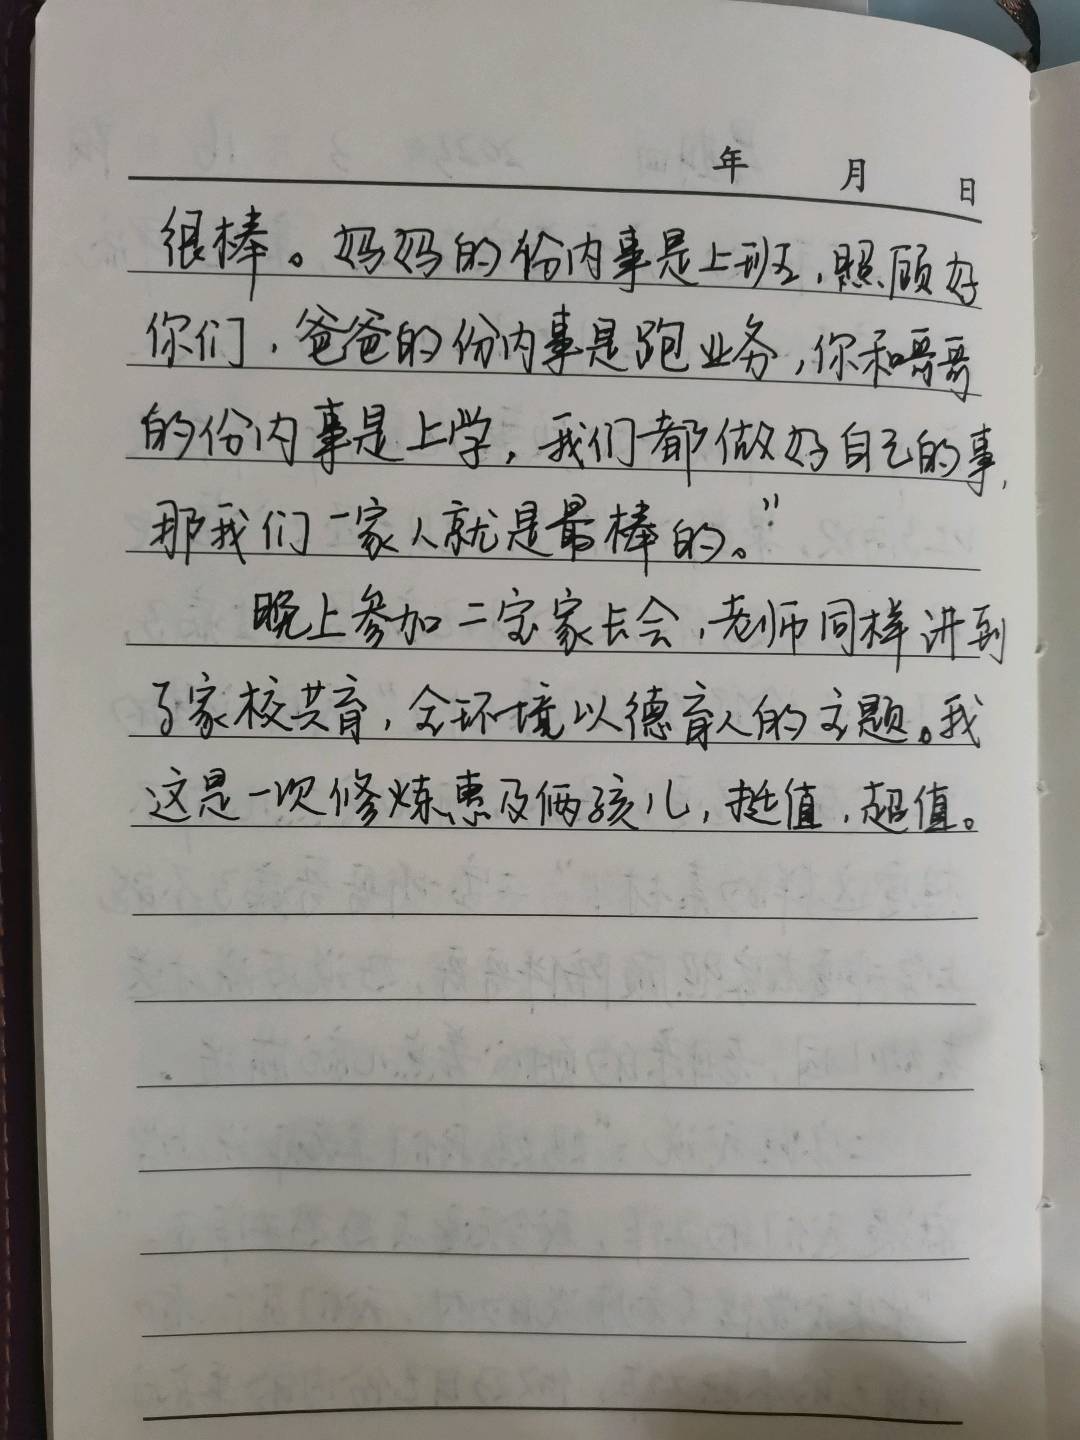 年 月 日
很棒。妈妈的份内事是上班，照顾好
你们，爸爸的份内事是跑业务，你和哥哥
的份内事是上学，我们都做好自己的事，
那我们一家人就是最棒的。”
晚上参加二宝家长会，老师同样讲到
了家校共育，全环境以德育人的主题。我
这是一次修炼惠及俩孩儿，挺值，超值。